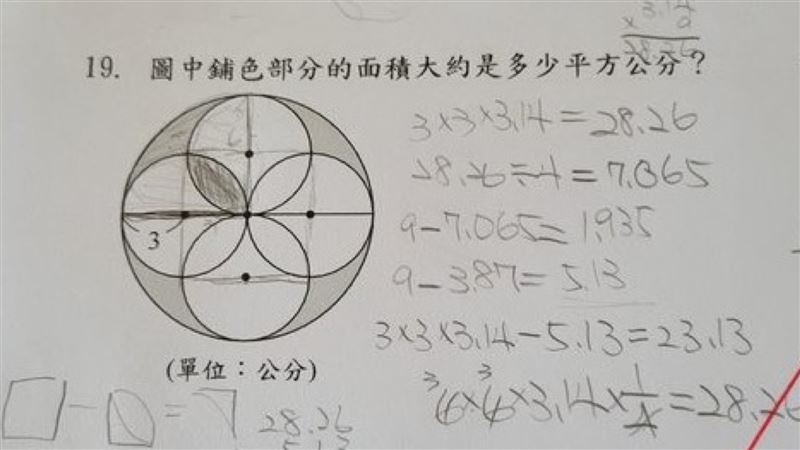 3.14
28.26
19. 圖中鋪色部分的面積大約是多少平方公分？
3×3×3.14=28.26
28.26÷4=7.065
9-7.065=1.935
9-3.87=5.13
3
3×3×3.14-5.13=23.13
(單位：公分)
3 3
6×6×3.14×1/4=28.26
28.26